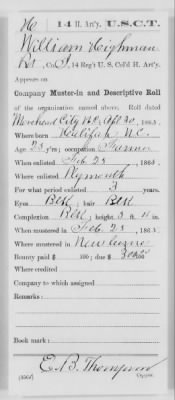 H | 14 H. Art'y. | U.S.C.T.
William Highman
Pvt, Co. I, 14 Reg't U. S. Col'd H. Art'y.
Appears on
Company Muster-in and Descriptive Roll
of the organization named above. Roll dated
Morehead City N.C. Apl 30, 1865.
Where born Halifax N.C.
Age 23 y'rs; occupation Farmer
When enlisted Feb 25, 1865.
Where enlisted Plymouth
For what period enlisted 3 years.
Eyes Blk; hair Blk
Complexion Blk; height 5 ft. in.
When mustered in Feb 25, 1865.
Where mustered in Newbern
Bounty paid $ 100; due $ 100
Where credited
Company to which assigned
Remarks:
Book mark:
E. B. Thompson
Copyist.